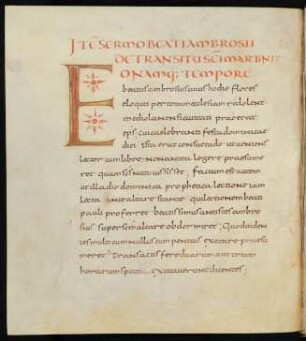 ITE SERMO BEATI AMBROSII
DE TRANSITU SCI MARTINI
EO NAMQ; TEMPORE
beatus ambrosius cuius hodie flores
eloquii per totam ecclesiam redolent
mediolanensi civitati praeerat
eps cui celebranti festa dominicae
diei ista erat consuetudo ut veniens
lector cum libro non ante legere praesume
ret quam sci nutu iussisset Factum est autem
ut illa die dominica prophetica lectione iam
lecta ante altare stante qui lectionem beati
pauli proferret beatissimus antistes ambro
sius super sem altare obdormiret; Quod viden
tes multi cum nullus eum penitus excitare praesu
meret Transactis fere duarum aut trium
horarum spatiis excitaverunt dicentes;